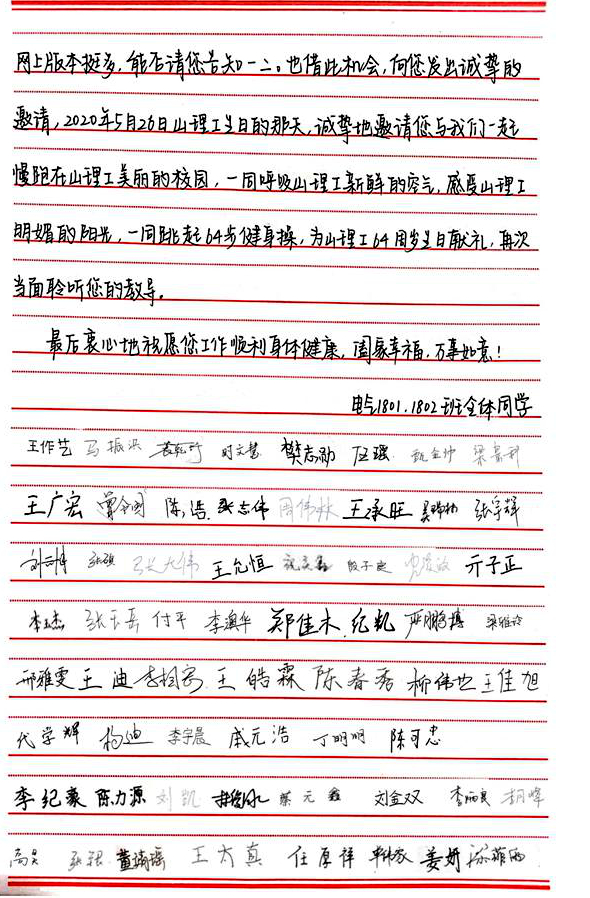 网上版本挺多,能否请您告知一二。也借此机会,向您发出诚挚的
邀请,2020年5月26日山理工生日的那天,诚挚地邀请您与我们一起
慢跑在山理工美丽的校园,一同呼吸山理工新鲜的空气,感受山理工
明媚的阳光,一同跳起64步健身操,为山理工64周岁生日献礼,再次
当面聆听您的教导。
最后衷心地祝愿您工作顺利身体健康,阖家幸福,万事如意!
电气1801、1802班全体同学
王作艺 马振洪 时文慧 樊志勋 伍强
王广宏 曾令国 陈浩 张志伟 周伟林 王承旺 张宇辉
张硕 张大伟 王允恒 亓子正
李玉杰 张玉磊 付平 李渔华 郑佳木 纪凯 严鹏博
邢雅雯 王迪 李相宾 王皓霖 陈春秀 柳伟也 王佳旭
代学辉 杨迪 李宇晨 戚元浩 丁明明 陈可忠
李纪豪 陈力源 刘凯 蔡元鑫 刘金双 李丽良 胡峰
高昊 张银 董请瑶 王大真 任厚祥 姜妍